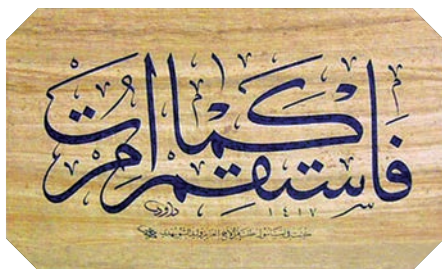 فَاسْتَقِمْ كَمَا أُمِرْتَ
داود
١٤١٧